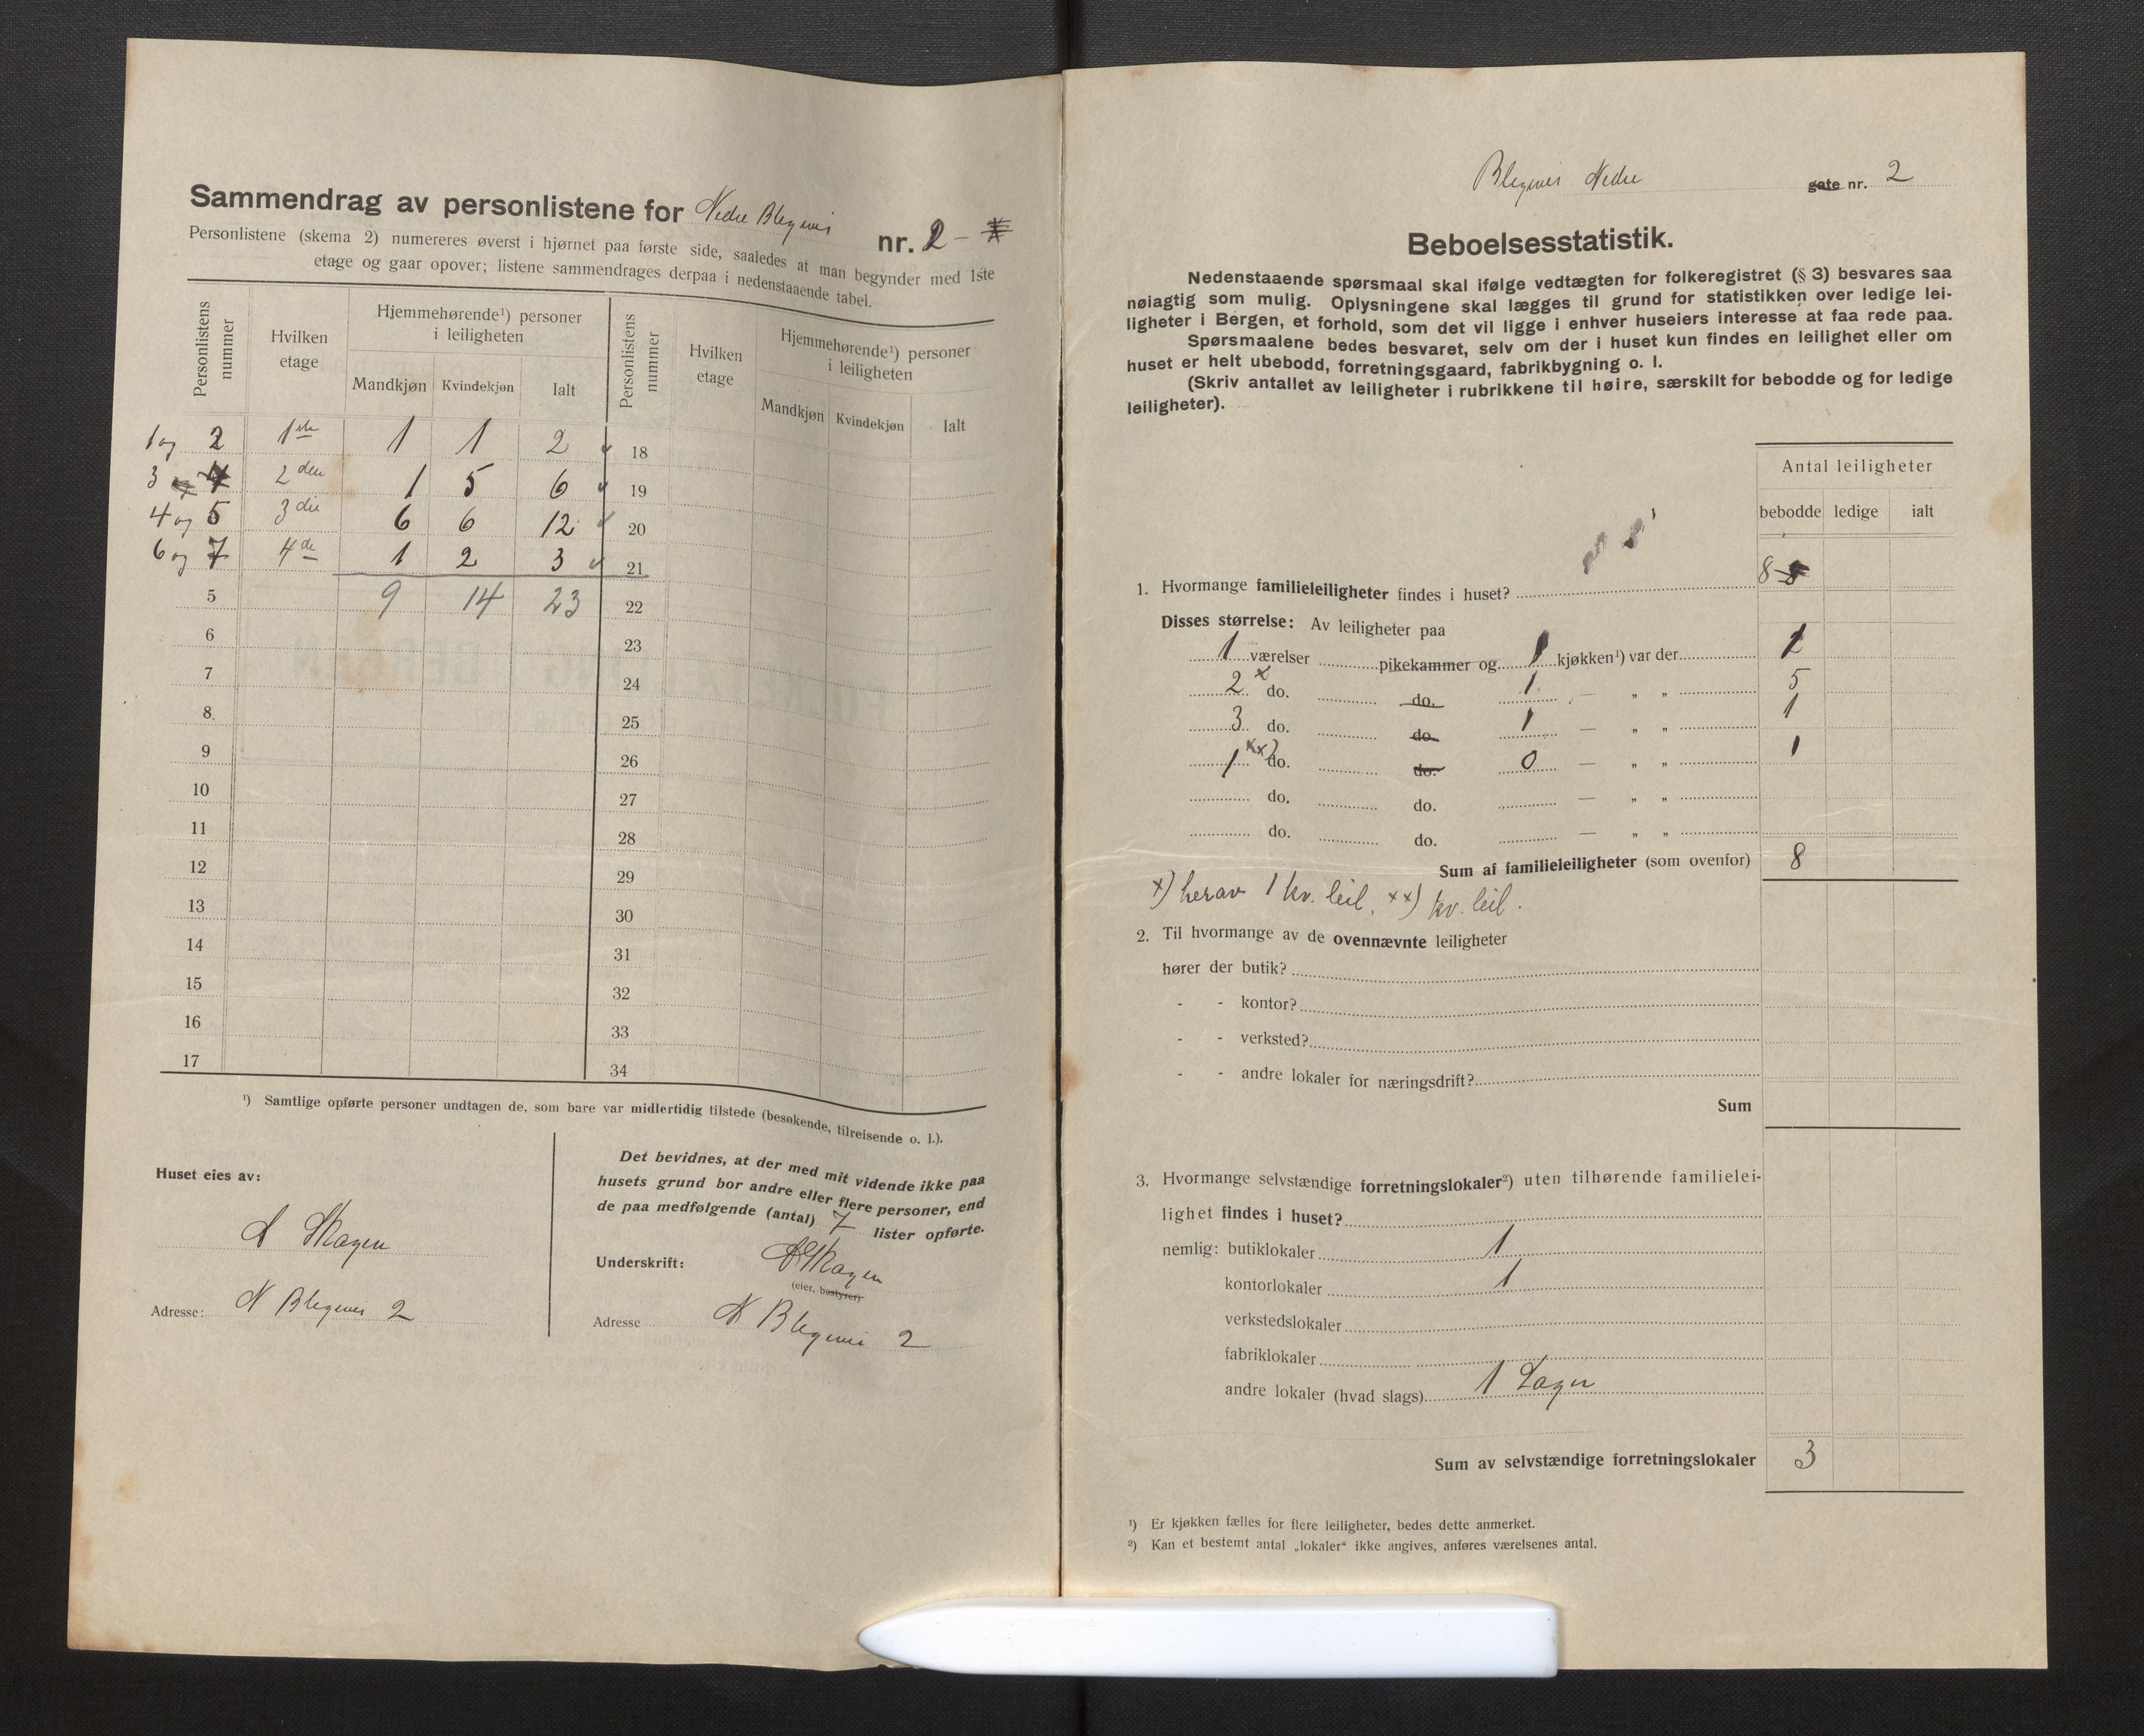 Sammendrag av personlistene for Nedre Blegvei nr. 2 -
Personlistene (skema 2) numereres øverst i hjørnet paa første side, saaledes at man begynder med 1ste
etage og gaar opover; listene sammendrages derpaa i nedenstaaende tabel.
Personlistens nummer | Hvilken etage | Hjemmehørende¹) personer i leiligheten | Personlistens nummer | Hvilken etage | Hjemmehørende¹) personer i leiligheten
Mandkjøn | Kvindekjøn | Ialt | Mandkjøn | Kvindekjøn | Ialt
1 og 2 | 1ste | 1 | 1 | 2 | 18
3 | 2den | 1 | 5 | 6 | 19
4 og 5 | 3die | 6 | 6 | 12 | 20
6 og 7 | 4de | 1 | 2 | 3 | 21
5 | 9 | 14 | 23 | 22
6 | 23
7 | 24
8 | 25
9 | 26
10 | 27
11 | 28
12 | 29
13 | 30
14 | 31
15 | 32
16 | 33
17 | 34
¹) Samtlige opførte personer undtagen de, som bare var midlertidig tilstede (besøkende, tilreisende o. l.).
Huset eies av:
A Skagen
Adresse: N Blegvei 2
Det bevidnes, at der med mit vidende ikke paa
husets grund bor andre eller flere personer, end
de paa medfølgende (antal) 7 lister opførte.
Underskrift: A Skagen
(eier, bestyrer)
Adresse N Blegvei 2
Blegvei Nedre gate nr. 2
Beboelsesstatistik.
Nedenstaaende spørsmaal skal ifølge vedtægten for folkeregistret (§ 3) besvares saa
nøiagtig som mulig. Oplysningene skal lægges til grund for statistikken over ledige lei-
ligheter i Bergen, et forhold, som det vil ligge i enhver huseiers interesse at faa rede paa.
Spørsmaalene bedes besvaret, selv om der i huset kun findes en leilighet eller om
huset er helt ubebodd, forretningsgaard, fabrikbygning o. l.
(Skriv antallet av leiligheter i rubrikkene til høire, særskilt for bebodde og for ledige
leiligheter).
Antal leiligheter
bebodde | ledige | ialt
1. Hvormange familieleiligheter findes i huset? 8
Disses størrelse: Av leiligheter paa
1 værelser pikekammer og 1 kjøkken¹) var der 1
2 x do. do. 1 — „ „ 5
3 do. do. 1 — „ „ 1
1 xx) do. do. 0 — „ „ 1
do. do. — „ „
do. do. — „ „
Sum af familieleiligheter (som ovenfor) 8
x) herav 1 kv. leil. xx) kv. leil.
2. Til hvormange av de ovennævnte leiligheter
hører der butik?
- - kontor?
- - verksted?
- - andre lokaler for næringsdrift?
Sum
3. Hvormange selvstændige forretningslokaler²) uten tilhørende familielei-
lighet findes i huset?
nemlig: butiklokaler 1
kontorlokaler 1
verkstedslokaler
fabriklokaler
andre lokaler (hvad slags) 1 Lager
Sum av selvstændige forretningslokaler 3
¹) Er kjøkken fælles for flere leiligheter, bedes dette anmerket.
²) Kan et bestemt antal „lokaler“ ikke angives, anføres værelsenes antal.